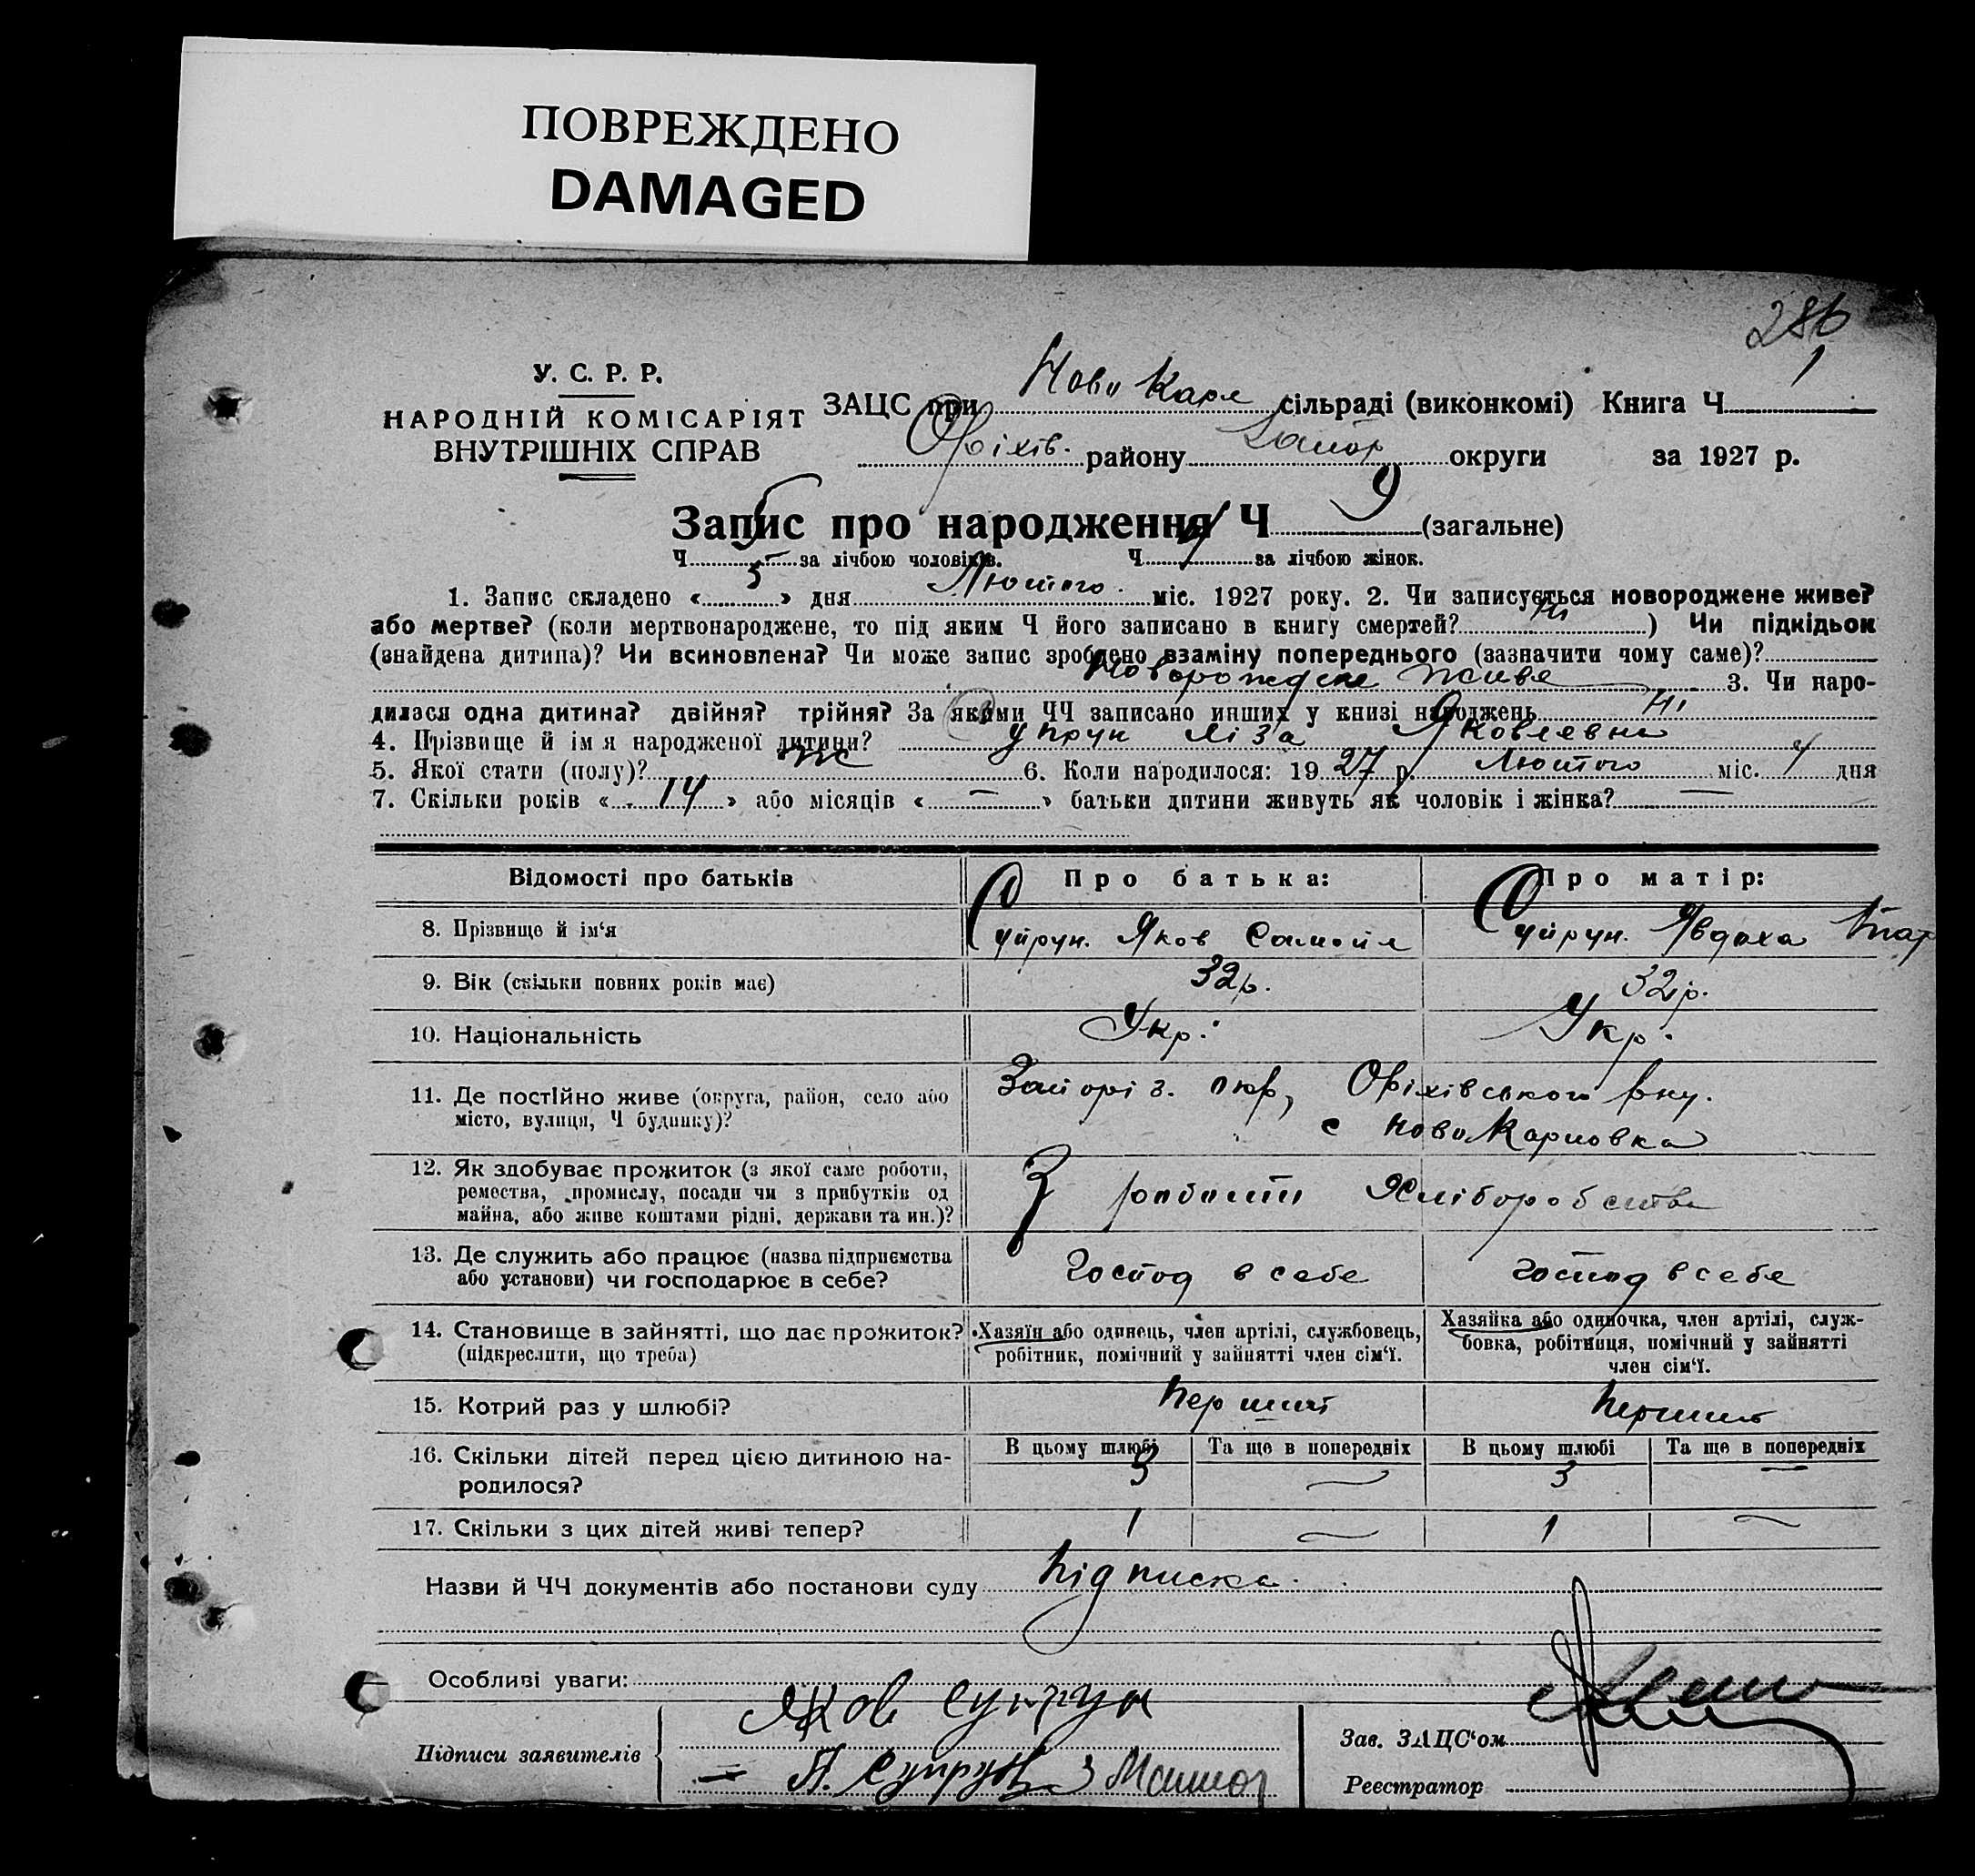 ПОВРЕЖДЕНО
DAMAGED
286
У. С. Р. Р.
НАРОДНІЙ КОМІСАРІЯТ
ВНУТРІШНІХ СПРАВ
ЗАЦС при Ново Карл сільраді (виконкомі) Книга Ч 1
Оріхів. району Запор округи за 1927 р.
Запис про народження Ч 9 (загальне)
Ч 5 за лічбою чоловіків. Ч 4 за лічбою жінок.
1. Запис складено «5» дня Лютого міс. 1927 року. 2. Чи записується новороджене живе?
або мертве? (коли мертвонароджене, то під яким Ч його записано в книгу смертей? Ні ) Чи підкідьок
(знайдена дитина)? Чи всиновлена? Чи може запис зроблено взаміну попереднього (зазначити чому саме)?
Новорождене живе 3. Чи наро-
дилася одна дитина? двійня? трійня? За якими ЧЧ записано инших у книзі народжень Ні
4. Прізвище й ім я народженої дитини? Супрун Ліза Яковлевна
5. Якої стати (полу)? ж 6. Коли народилося: 1927 р. Лютого міс. 4 дня
7. Скільки років «14» або місяців «—» батьки дитини живуть як чоловік і жінка? —
Відомості про батьків Про батька: Про матір:
8. Прізвище й ім'я Супрун. Яков Самойл Супрун. Явдоха
9. Вік (скільки повних років має) 32р. 32р.
10. Національність Укр. Укр.
11. Де постійно живе (округа, район, село або
місто, вулиця, Ч будинку)?
Запоріз. окр, Оріхівського рну.
с Ново Карловка
12. Як здобуває прожиток (з якої саме роботи,
ремества, промислу, посади чи з прибутків од
майна, або живе коштами рідні, держави та ин.)?
З работи Хліборобства
13. Де служить або працює (назва підприємства
або установи) чи господарює в себе?
Господ в себе Господ в себе
14. Становище в зайнятті, що дає прожиток?
(підкреслити, що треба)
Хазяїн або одинець, член артілі, службовець,
робітник, помічний у зайнятті член сім'ї.
Хазяйка або одиночка, член артілі, служ-
бовка, робітниця, помічний у зайнятті
член сім'ї.
15. Котрий раз у шлюбі? Перший Перший
В цьому шлюбі Та ще в попередніх В цьому шлюбі Та ще в попередніх
16. Скільки дітей перед цією дитиною на-
родилося?
3 — 3 —
17. Скільки з цих дітей живі тепер? 1 — 1 —
Назви й ЧЧ документів або постанови суду Підписка
Особливі уваги:
Підписи заявителів
Яков Супрун
Зав. ЗАЦС'ом
Реєстратор